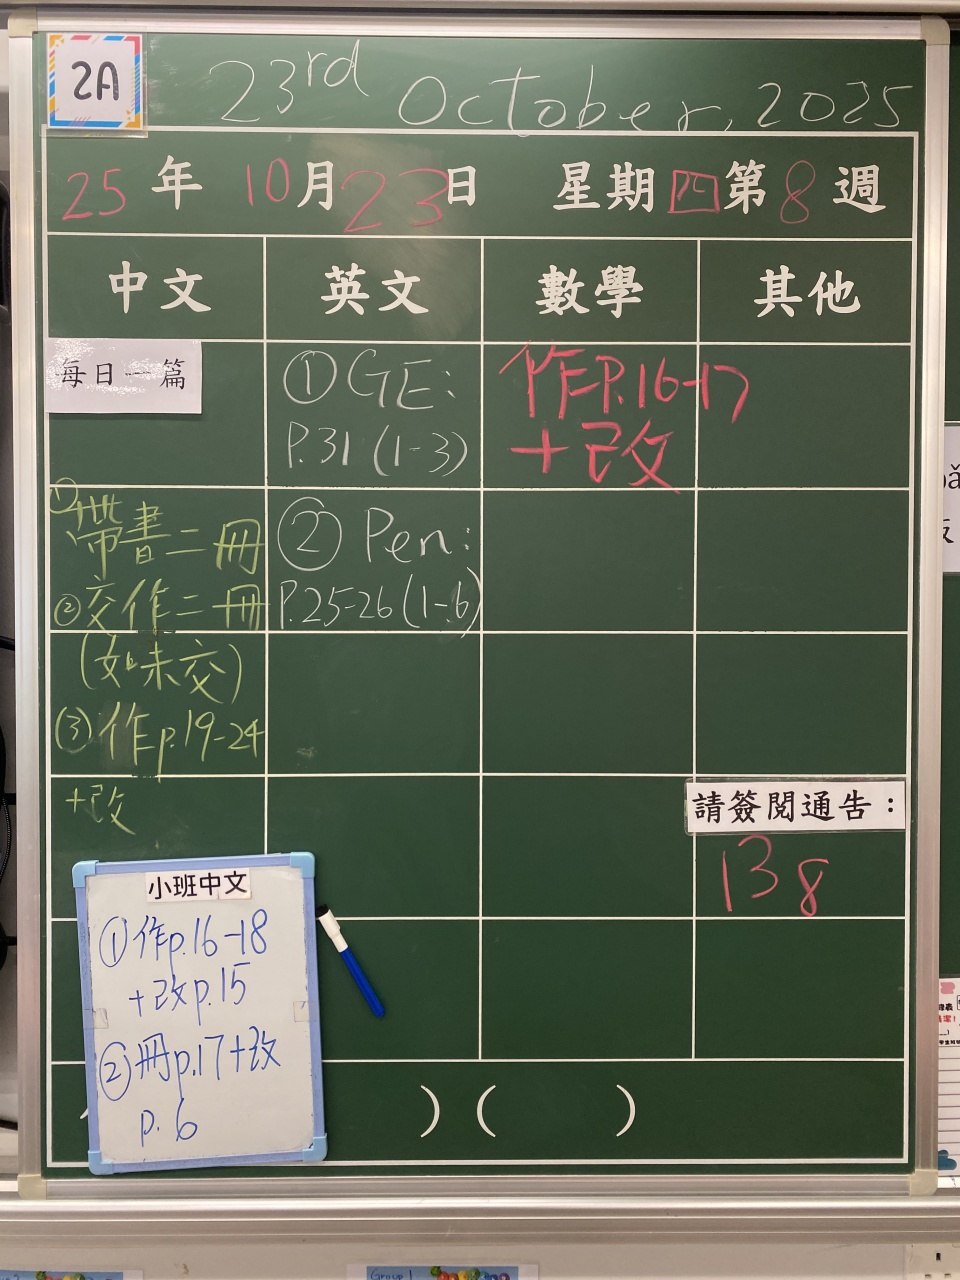 2A
23rd October, 2025
25年10月23日 星期四第8週
中文 英文 數學 其他
每日一篇
①帶書二冊
②交作二冊
(如未交)
③作p.19-24
+改
①GE:
P.31(1-3)
②Pen:
P.25-26(1-6)
作P.16-17
+改
請簽閱通告：
138
小班中文
①作p.16-18
+改p.15
②冊p.17+改
p.6
( ) ( )
Group 1